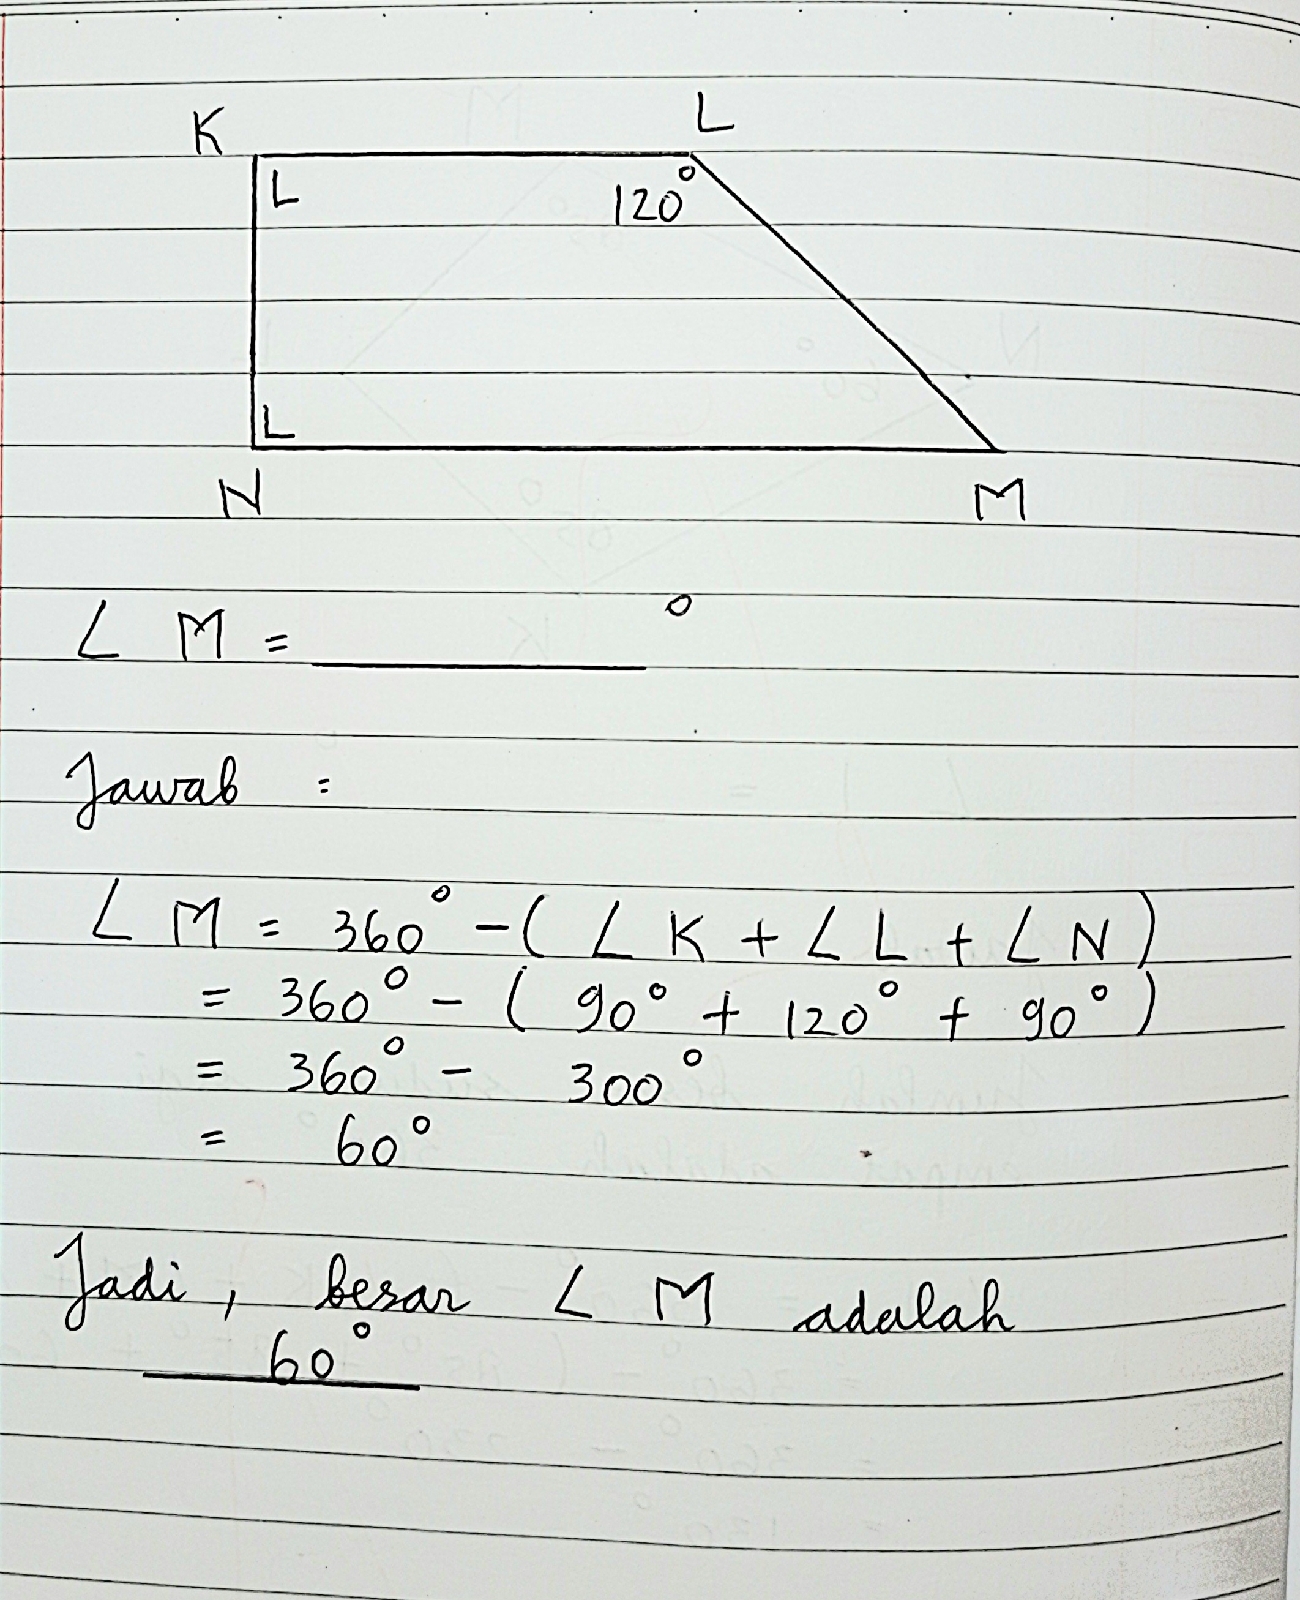 K L
120°
N M
∠ M = ________°
Jawab :
∠ M = 360° - ( ∠ K + ∠ L + ∠ N )
= 360° - ( 90° + 120° + 90° )
= 360° - 300°
= 60°
Jadi , besar ∠ M adalah
60°